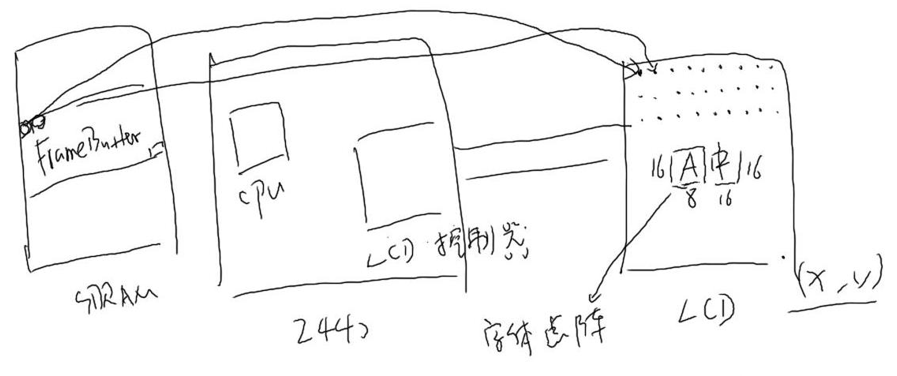 FrameButter
SDRAM
CPU
LCD 控制器
2440
16 A 中 16
8 16
字体点阵
LCD
(x,y)